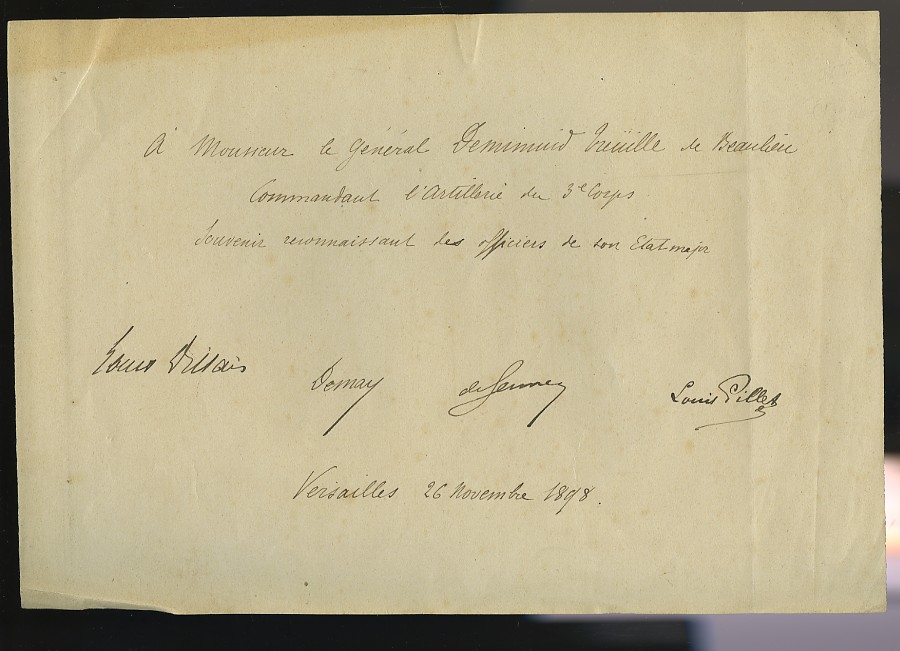 À Monsieur le Général Demimuid Treüille de Beaulieu
Commandant l'Artillerie du 3e Corps
Souvenir reconnaissant des officiers de son Etat major
Demay
Louis Pillet
Versailles 26 Novembre 1898.